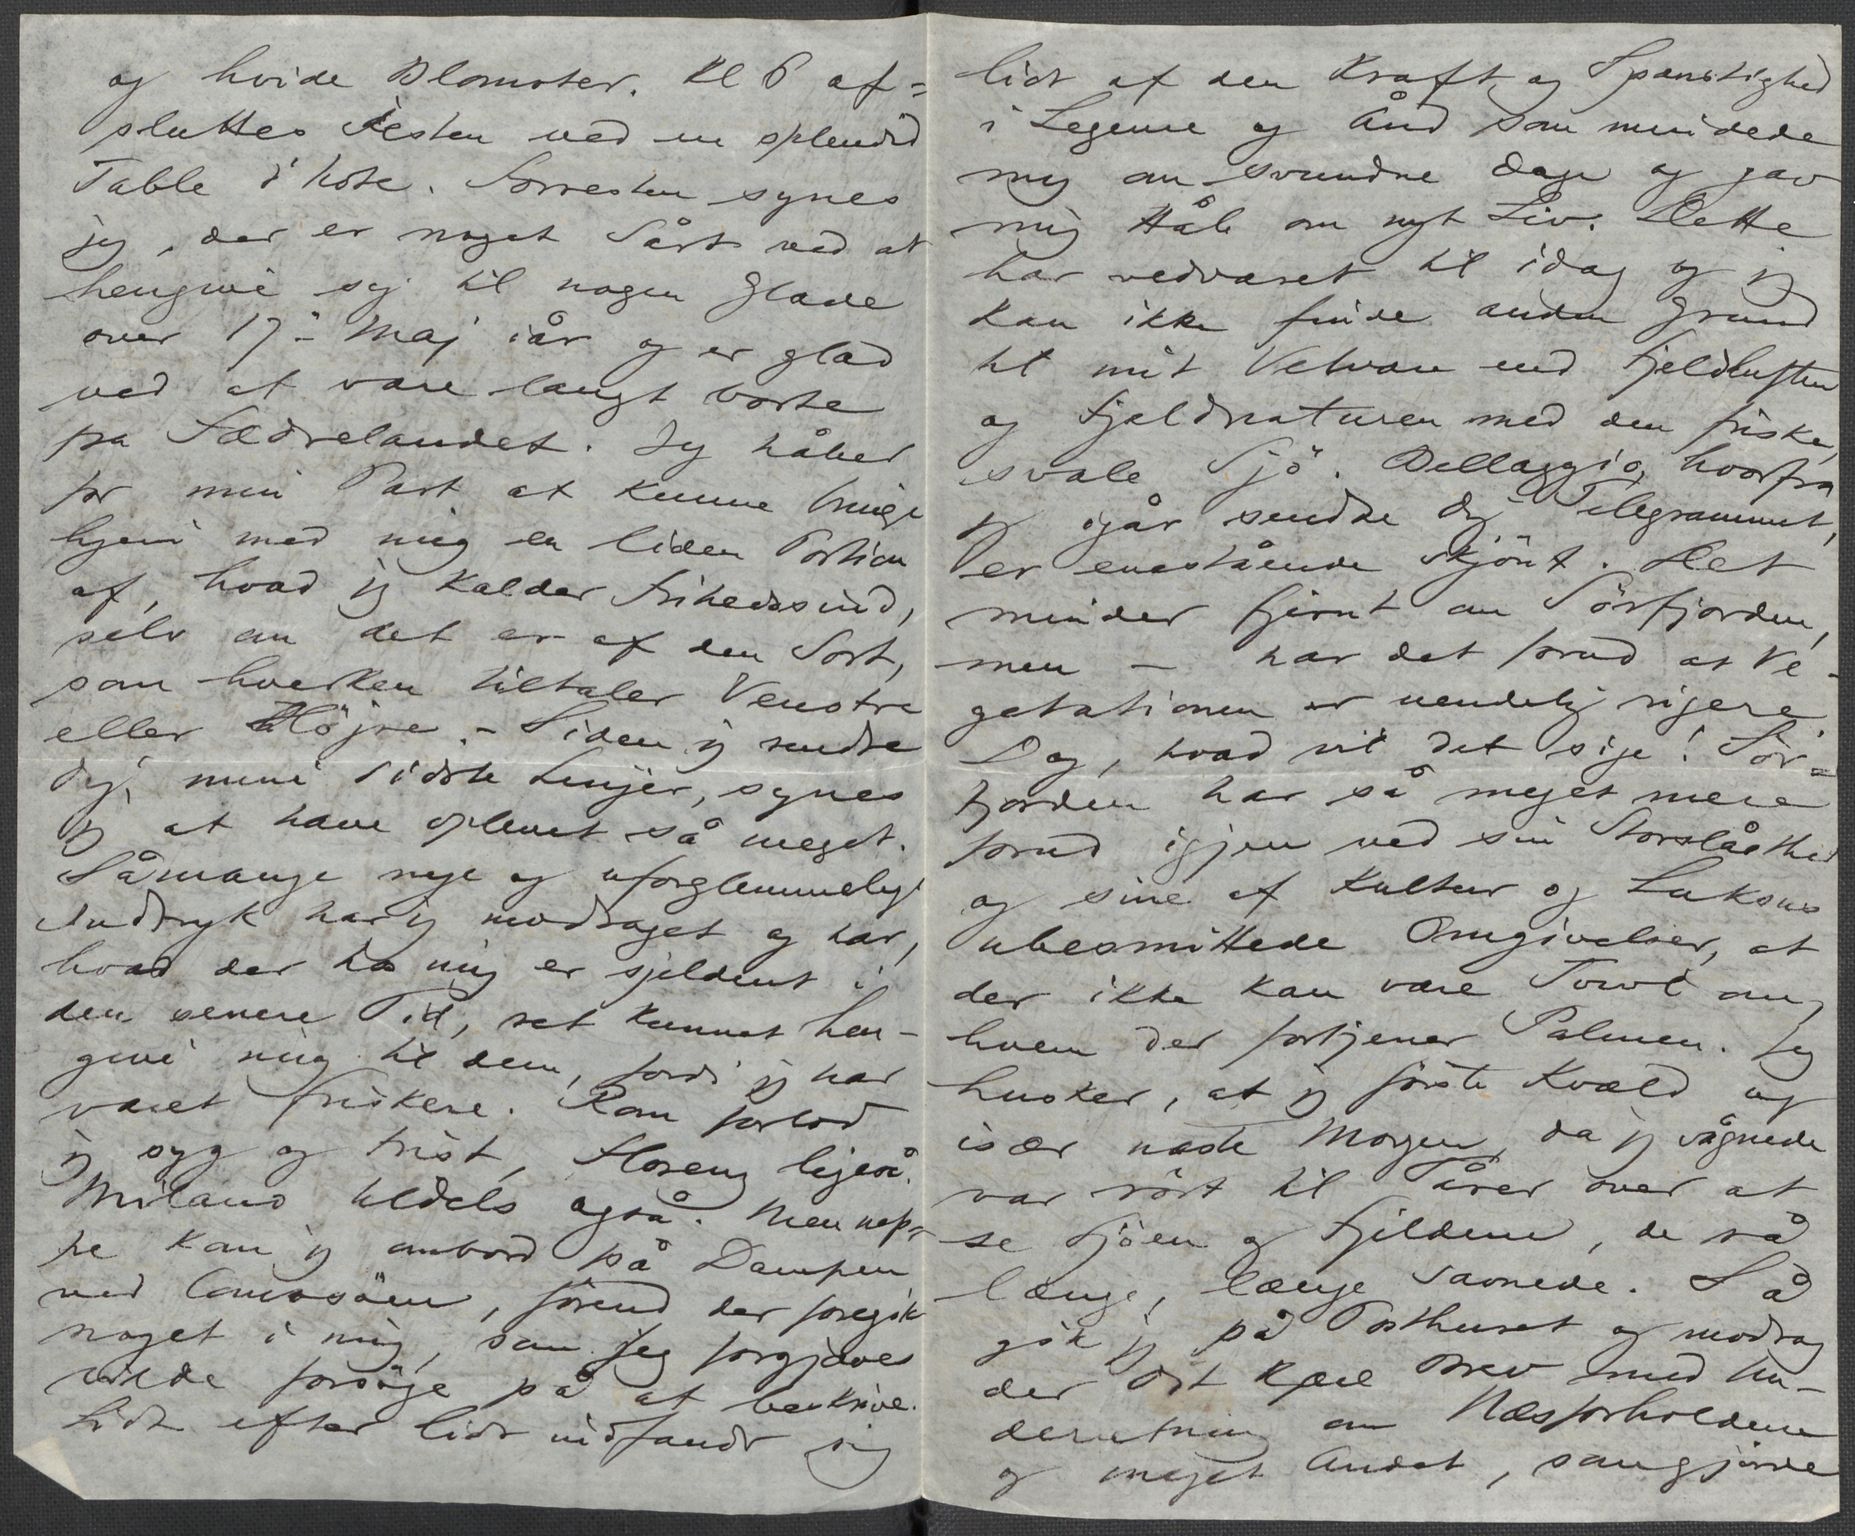 og hvide Blomster. Kl 6 af=
sluttes Festen ved en splendid
Table d'hote. Forresten synes
jeg, der er noget Sårt ved at
hengive sig til nogen Glæde
over 17de Maj iår og er glad
ved at være langt borte
fra Fædrelandet. Jeg håber
for min Part at kunne bringe
hjem med mig en liden Portion
af, hvad jeg kalder Frihedssind,
selv om det er af den Sort,
som hverken tiltaler Venstre
eller Höjre. – Siden jeg sendte
dig mine sidste Linjer, synes
jeg at have oplevet så meget.
Såmange nye og uforglemmelige
Indtryk har jeg modtaget og har,
hvad der hos mig er sjeldent i
den senere Tid, ret kunnet hen-
give mig til dem, fordi jeg har
været friskere. Rom forlod
jeg syg og trist, Florenz ligeså.
Milano tildels også. Men nep=
pe kom jeg ombord på Dampen
ved Comosöen, förend der foregik
noget i mig, som jeg forgjæves
vilde forsöge på at beskrive.
Lidt efter lidt indfandt sig
lidt af den Kraft og Spænstighed
i Legeme og Ånd som mindede
mig om svundne Dage og gav
mig Håb om nyt Liv. Dette
har vedvaret til idag og jeg
kan ikke finde anden Grund
til mit Velvære end Fjeldluften
og Fjeldnaturen med den friske,
svale Sjö. Bellaggio, hvorfra
jeg igår sendte dig Telegrammet,
er enestående skjönt. Det
minder fjernt om Sörfjorden,
men – har det forud at Ve-
getationen er uendelig rigere.
Dog, hvad vil det sige! Sör=
fjorden har så meget mere
forud igjen ved sin Storslåthed
og sine af Kultur og Luksus
ubesmittede Omgivelser, at
der ikke kan være Tvivl om,
hvem der fortjener Palmen. Jeg
husker, at jeg förste Kvæld og
især næste Morgen, da jeg vågnede
var rört til Tårer over at
se Sjöen og Fjeldene, de så
længe, længe savnede. Så
gik jeg på Posthuset og modtog
der dit kjære Brev med Un-
derretning om Næsforholdene
og meget Andet, som gjorde